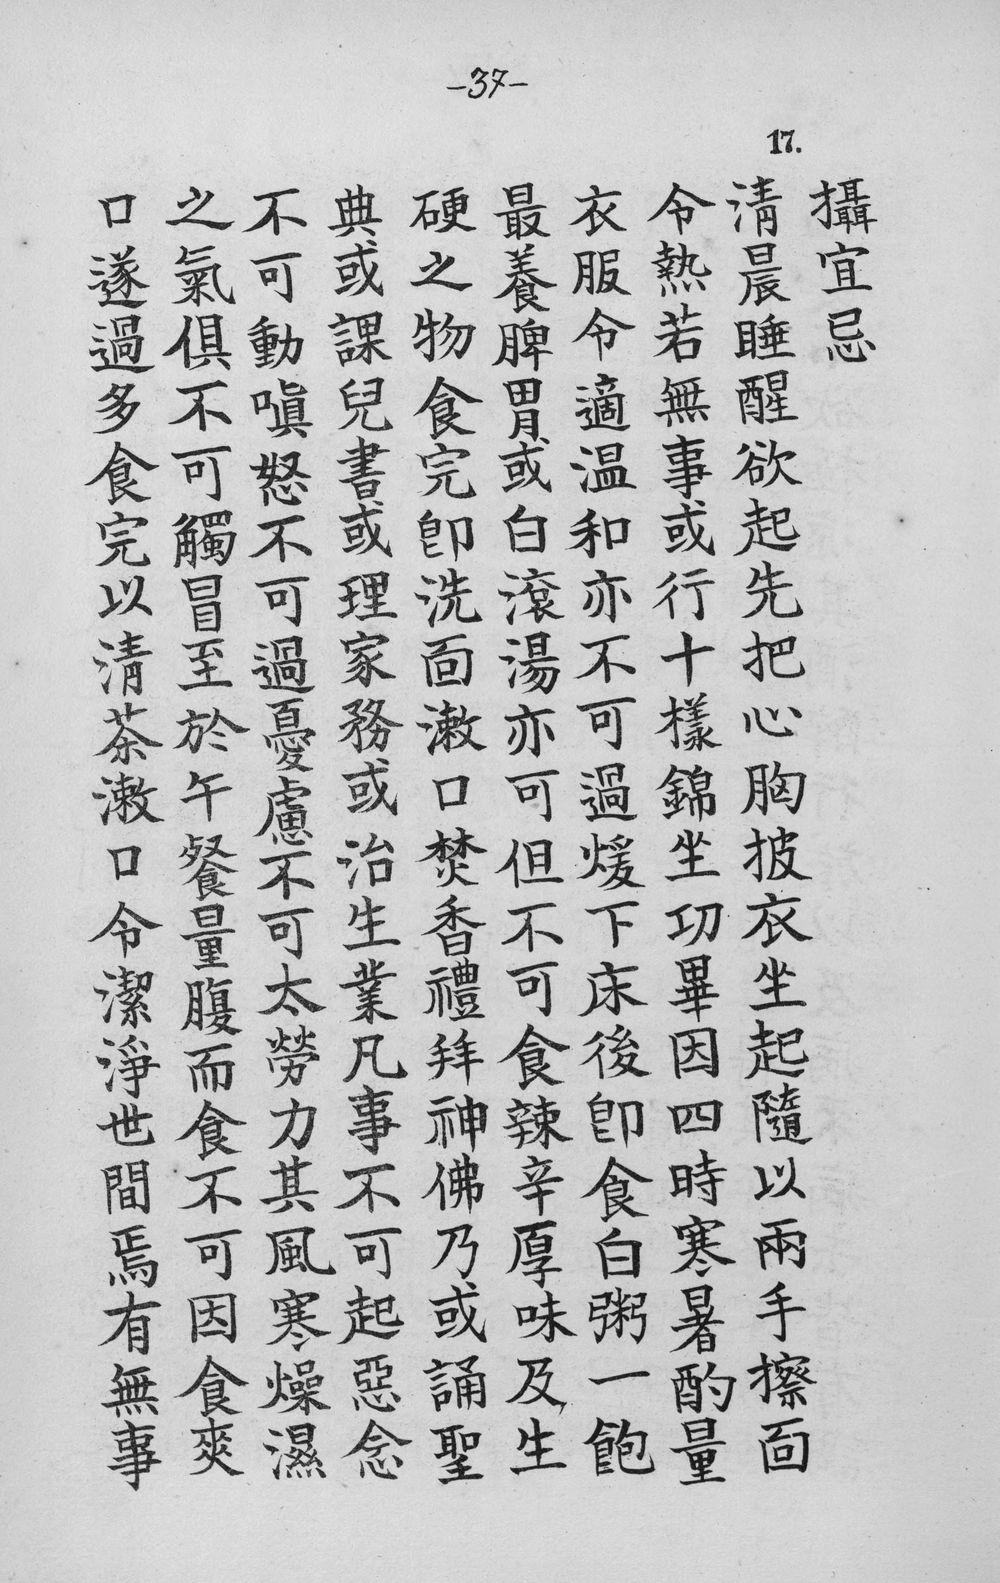 -37-
17.
攝宜忌
清晨睡醒欲起先把心胸披衣坐起隨以兩手擦面
令熱若無事或行十樣錦坐功畢因四時寒暑酌量
衣服令適温和亦不可過煖下床後卽食白粥一飽
最養脾胃或白滾湯亦可但不可食辣辛厚味及生
硬之物食完卽洗面漱口焚香禮拜神佛乃或誦聖
典或課兒書或理家務或治生業凡事不可起惡念
不可動嗔怒不可過憂慮不可太勞力其風寒燥濕
之氣俱不可觸冒至於午餐量腹而食不可因食爽
口遂過多食完以清茶漱口令潔淨世間焉有無事